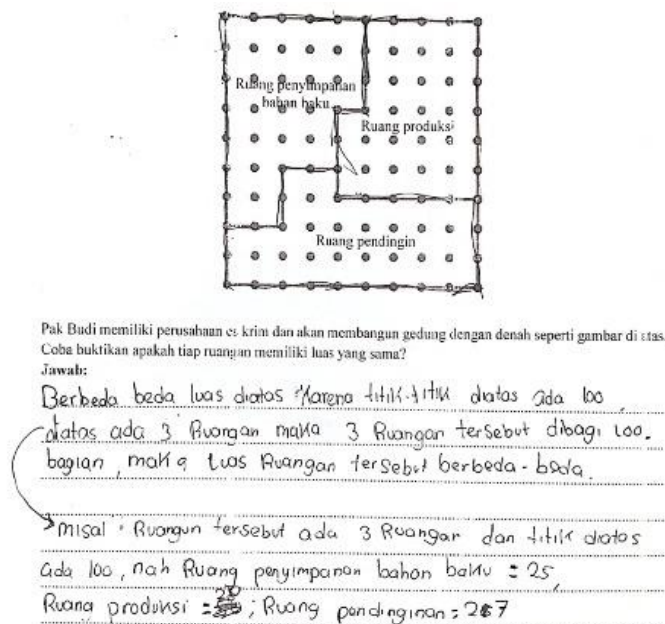 Ruang penyimpanan
bahan baku
Ruang produksi
Ruang pendingin
Pak Budi memiliki perusahaan es krim dan akan membangun gedung dengan denah seperti gambar di atas.
Coba buktikan apakah tiap ruangan memiliki luas yang sama?
Jawab:
Berbeda beda luas diatas karena titik-titik diatas ada 100,
diatas ada 3 Ruangan maka 3 Ruangan tersebut dibagi 100.
bagian, maka luas Ruangan tersebut berbeda-beda.
misal : Ruangan tersebut ada 3 Ruangan dan titik diatas
ada 100, nah Ruang penyimpanan bahan baku = 25,
Ruang produksi = ; Ruang pendinginan = 27